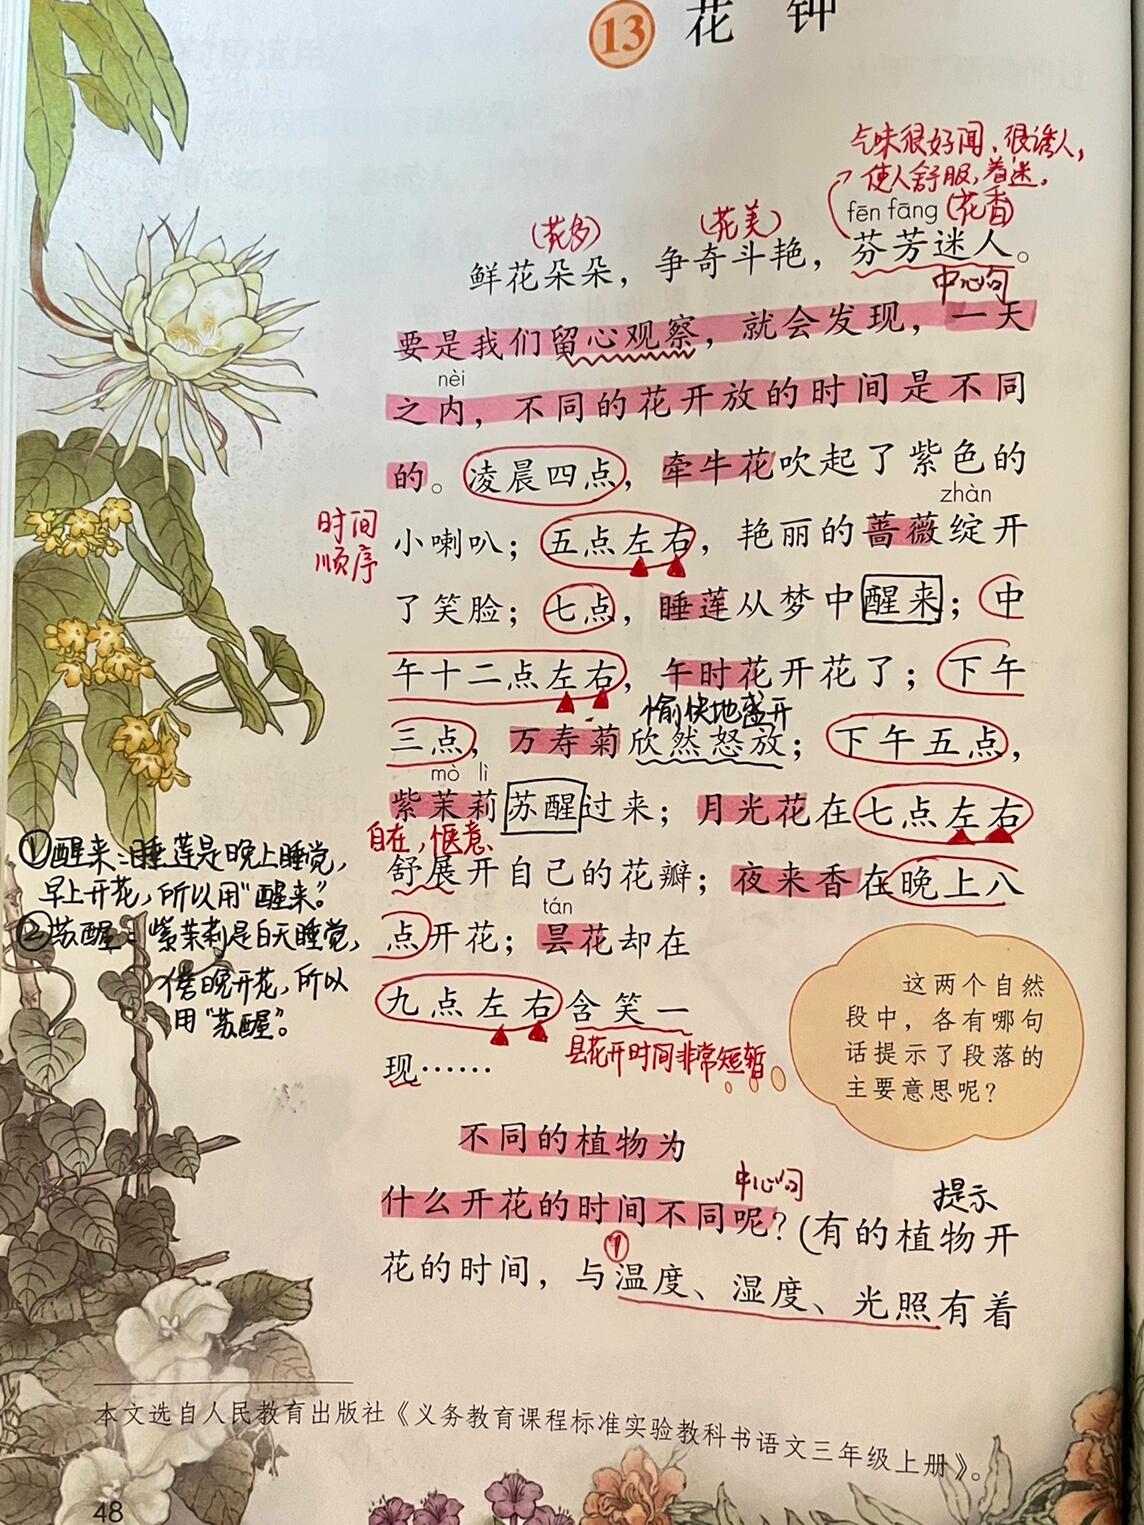 13 花钟
气味很好闻、很诱人，
使人舒服，着迷。
(花多) (花美) fēn fāng (花香)
鲜花朵朵，争奇斗艳，芬芳迷人。
中心句
要是我们留心观察，就会发现，一天
nèi
之内，不同的花开放的时间是不同
的。凌晨四点，牵牛花吹起了紫色的
zhàn
时间
顺序
小喇叭；五点左右，艳丽的蔷薇绽开
了笑脸；七点，睡莲从梦中醒来；中
午十二点左右，午时花开花了；下午
愉快地盛开
三点，万寿菊欣然怒放；下午五点，
mò lì
紫茉莉苏醒过来；月光花在七点左右
自在，惬意
舒展开自己的花瓣；夜来香在晚上八
tán
点开花；昙花却在
九点左右含笑一
昙花开时间非常短暂
现……
①醒来：睡莲是晚上睡觉，
早上开花，所以用“醒来”。
②苏醒：紫茉莉是白天睡觉，
傍晚开花，所以
用“苏醒”。
这两个自然
段中，各有哪句
话提示了段落的
主要意思呢？
不同的植物为
中心句
什么开花的时间不同呢？(有的植物开
提示
①
花的时间，与温度、湿度、光照有着
本文选自人民教育出版社《义务教育课程标准实验教科书语文三年级上册》。
48